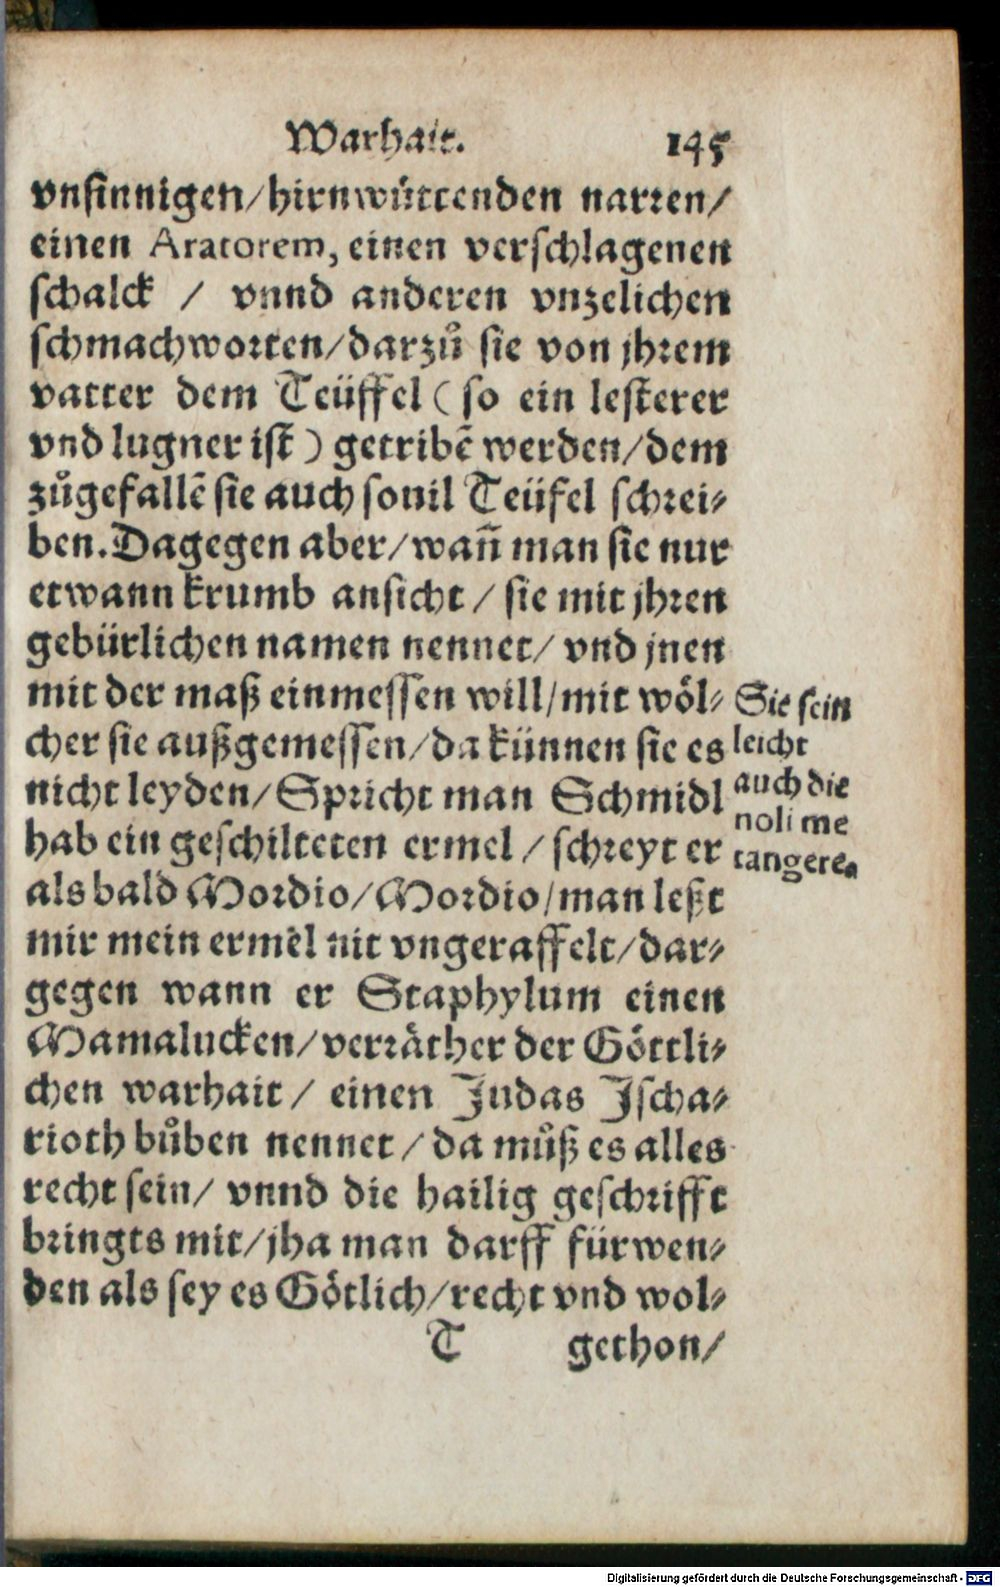 Warhait. 145
vnsinnigen/hirnwüttenden narren/
einen Aratorem, einen verschlagenen
schalck / vnnd anderen vnzelichen
schmachworten/darzů sie von jhrem
vatter dem Teüffel (so ein lesterer
vnd lugner ist) getribē werden/dem
zůgefallē sie auch souil Teüfel schrei⸗
ben. Dagegen aber/wañ man sie nur
etwann krumb ansicht / sie mit jhren
gebürlichen namen nennet/ vnd jnen
mit der maß einmessen will/mit wöl⸗
cher sie außgemessen/da künnen sie es
nicht leyden/Spricht man Schmidl
hab ein geschilteten ermel / schreyt er
als bald Mordio/Mordio/man leßt
mir mein ermel nit vngeraffelt/dar⸗
gegen wann er Staphylum einen
Mamalucken/verräther der Göttli⸗
chen warhait / einen Judas Jscha⸗
rioth bůben nennet / da můß es alles
recht sein/ vnnd die hailig geschrifft
bringts mit/jha man darff fürwen⸗
den als sey es Götlich/recht vnd wol⸗
T gethon/
Sie sein
leicht
auch die
noli me
tangere.
Digitalisierung gefördert durch die Deutsche Forschungsgemeinschaft - DFG